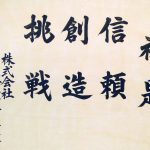 信頼
創造
挑戦
株式会社